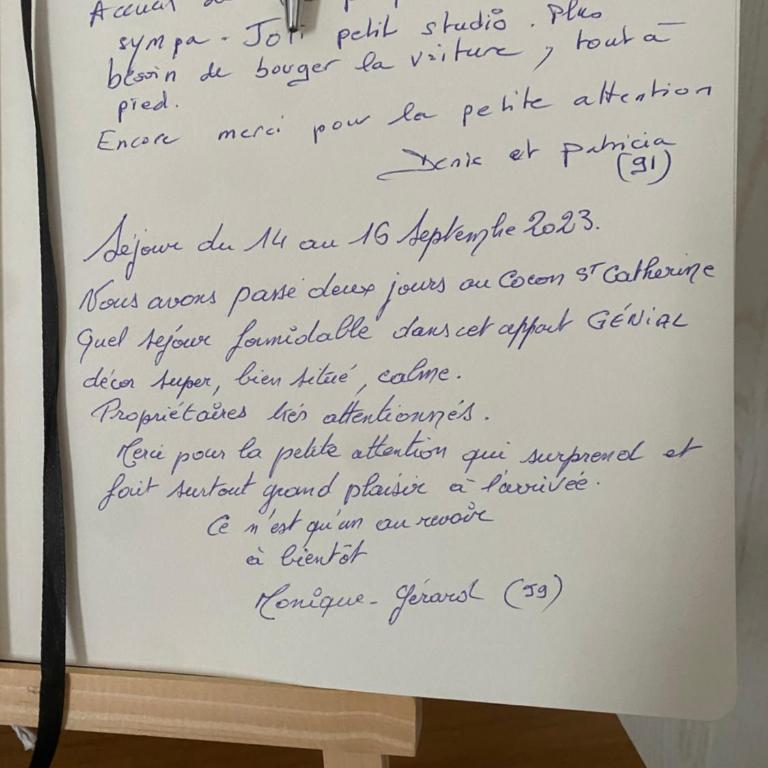 Accueil
sympa. Joli petit studio. Plus
besoin de bouger la voiture, tout à
pied.
Encore merci pour la petite attention
Denis et Patricia
(91)
Séjour du 14 au 16 Septembre 2023.
Nous avons passé deux jours au Cocon ST Catherine
Quel séjour formidable dans cet appart GÉNIAL
décor super, bien situé, calme.
Propriétaires très attentionnés.
Merci pour la petite attention qui surprend et
fait surtout grand plaisir à l'arrivée.
Ce n'est qu'un au revoir
à bientôt
Monique - Gérard (59)